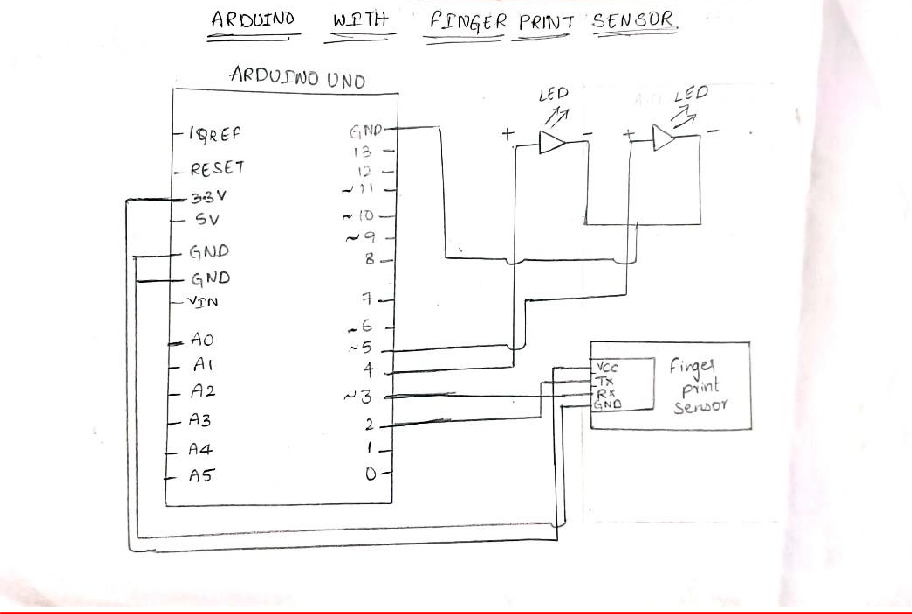 ARDUINO WITH FINGER PRINT SENSOR.
ARDUINO UNO
IQREF
RESET
33V
5V
GND
GND
VIN
A0
A1
A2
A3
A4
A5
GND
13
12
~11
~10
~9
8
7
~6
~5
4
~3
2
1
0
LED
+ -
LED
+ -
VCC
TX
RX
GND
Finger
print
sensor